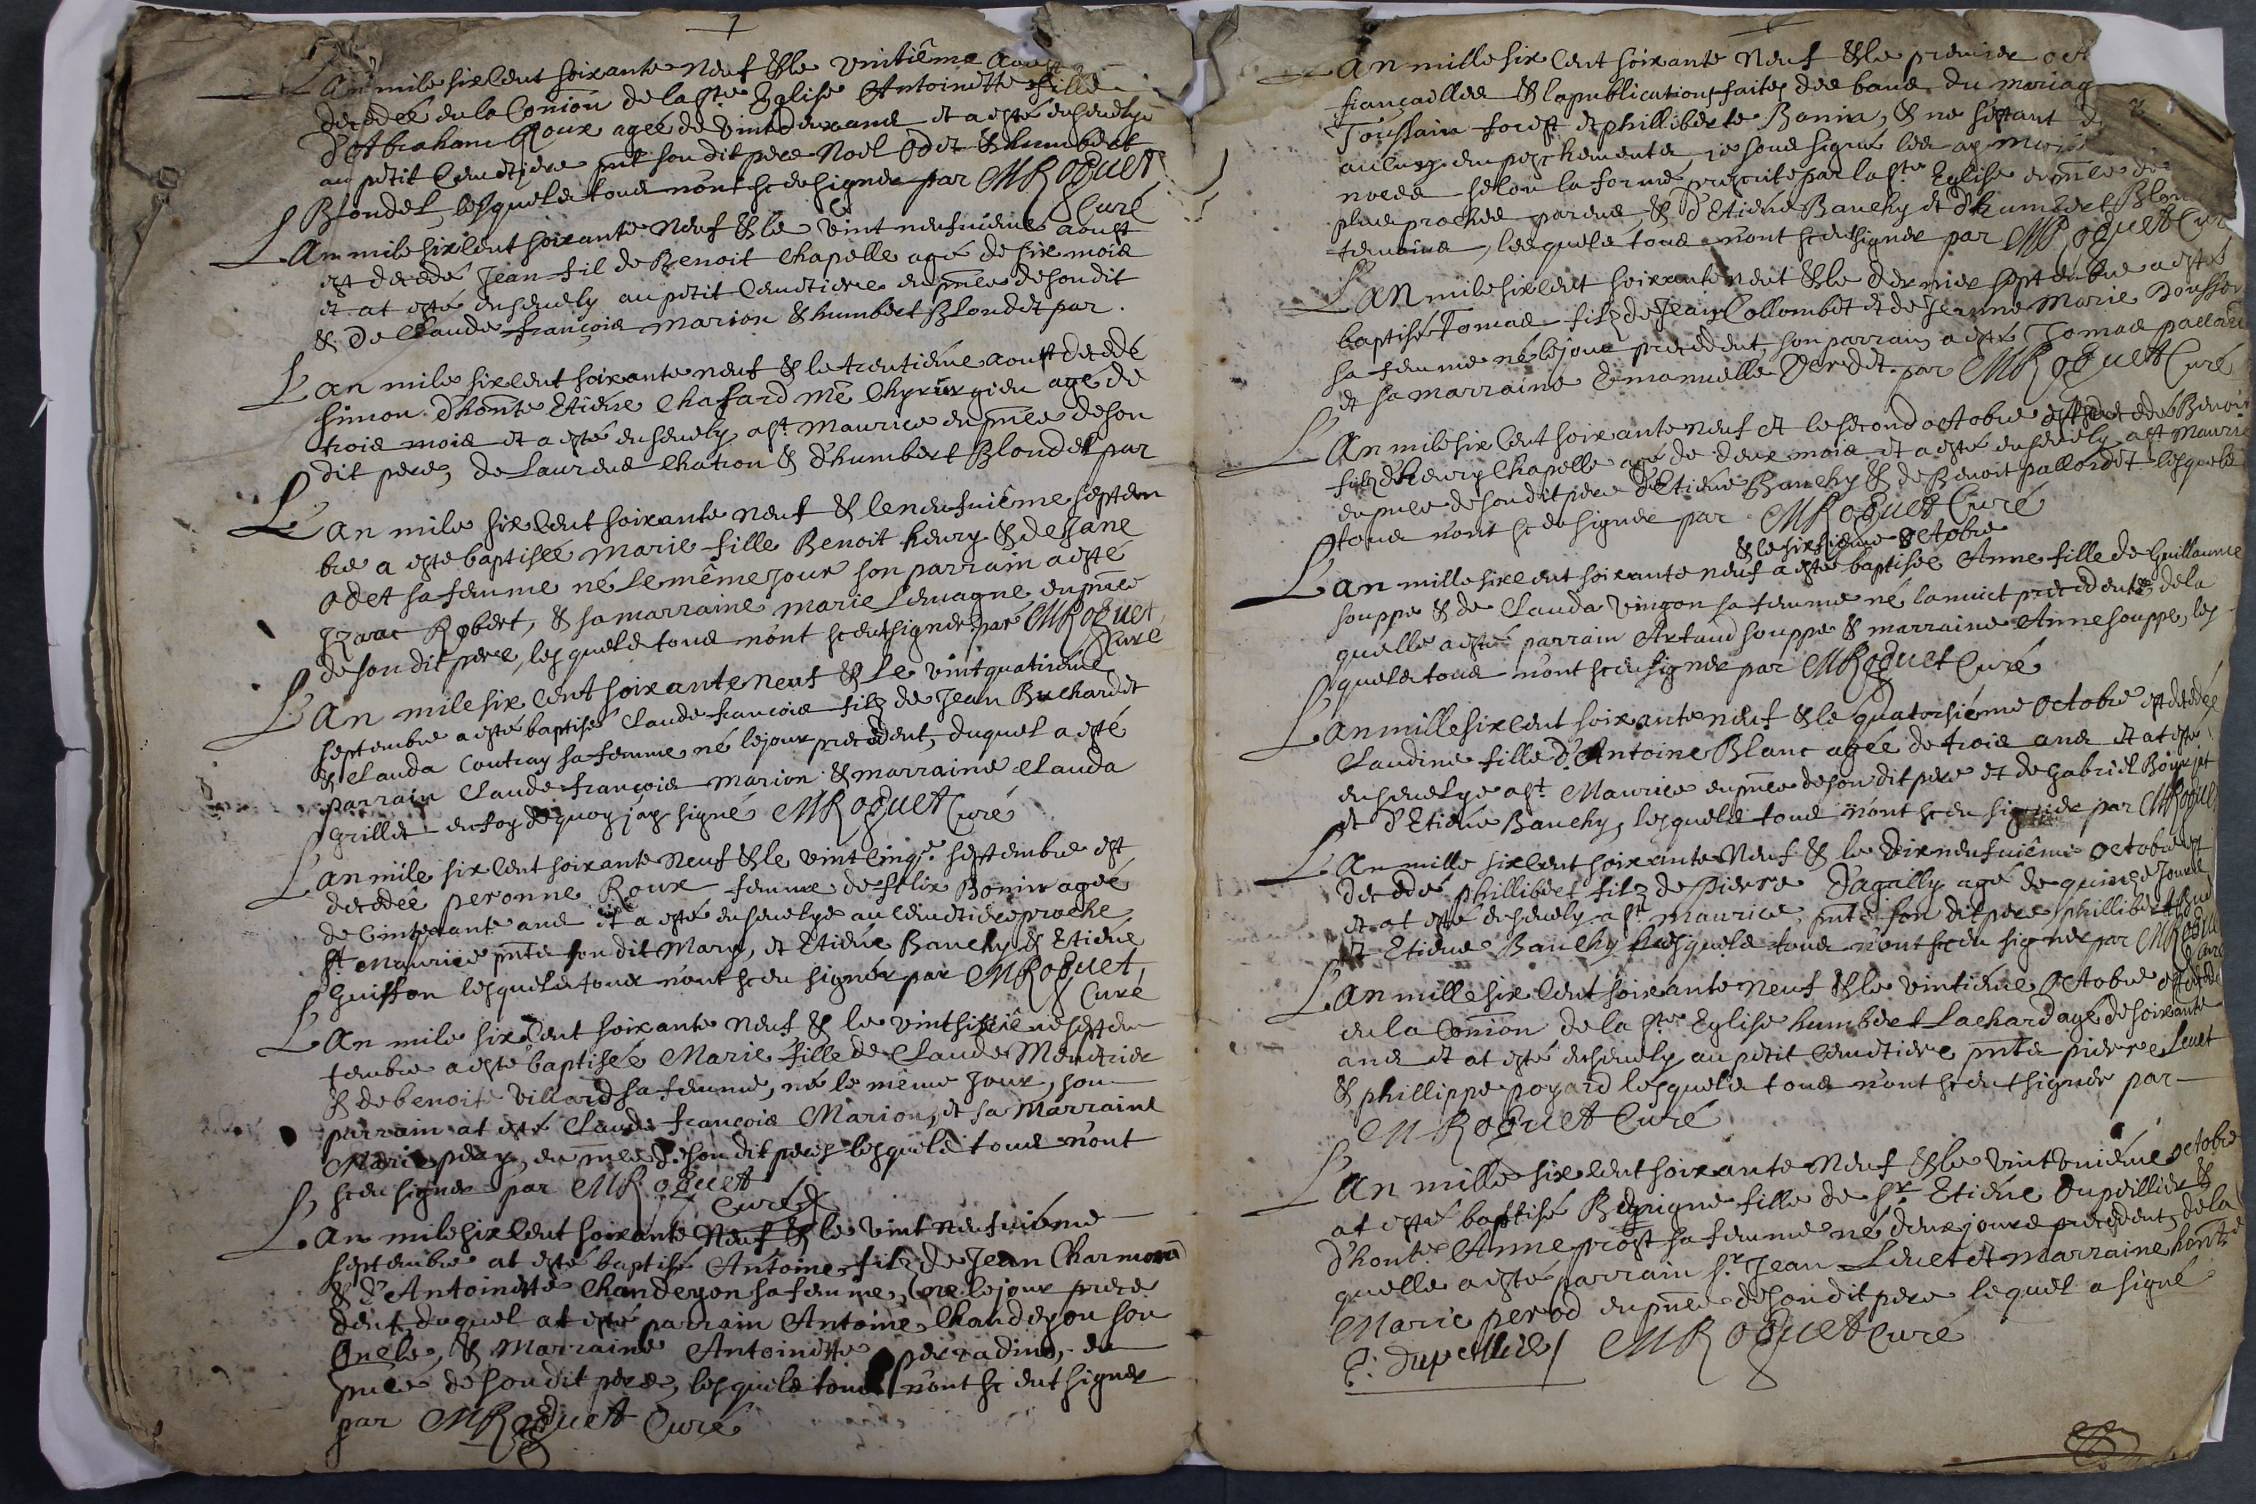 Lan mile six cent soixante neuf & le vintiême aoust
decedée en la Coniōn de la ste Eglise Antoinette fille
d'Abraham Roux agée de vint deux ans et a esté ensevelye
au petit Cemetiere pnt son dit pere Noel Odet & humbert
Blondel, lesquels tous n'ont sceu signer par MRoguet
Curé
Lan mile six cent soixante neuf & le vint neufuieme aoust
est decedé Jean fil de Benoit Chapelle agé de six mois
et at esté ensevely au petit Cemetiere en pnce de son dit
& de Claude françois Marion & humbert Blondel par.
Lan mile six cent soixante neuf & le trentiéme aoust decedé
Simon d'honte Etiéne Chasard me Chyrurgien agé de
trois mois et a esté ensevely a st Maurice en pnce de son
dit pere, de Laurens Chation & d'humbert Blondel par
Lan mile six cent soixante neuf & le neufuiême septem
bre a esté baptisée Marie fille Benoit henry & de Jane
Odet sa femme né le même jour son parrain a esté
Izaac Robert, & sa marraine Marie Lemagne en pnce
de son dit pere, lesquels tous n'ont sceut signer par MRoguet
Curé
Lan mile six cent soixante neuf & Le vint quatriéme
septembre a esté baptisé Claude francois filz de Jean Buchardet
& Clauda Coutray sa femme né le jour precedent, duquel a esté
parrain Claude françois Marion & marraine Clauda
Grillet en foy de quoy j'ay signé MRoguet Curé
Lan mile six cent soixante neuf & le vint cinqe septembre est
decedée peronne Roux femme de felix Bonin agée
de Cinquante ans et a esté ensevelye au Cemetiere proche
st Maurice pnte son dit Mary, et Etiéne Bauchy & Etiene
Guisson lesquels tous n'ont sceu signer par MRoguet,
Curé
Lan mile six Cent soixante neuf & le vint sixiême septem
tembre a esté baptisée Marie fille de Claude Menetrier
& de benoite Villard sa femme, né le même Jour, son
parrain at esté Claude françois Marion, et sa Marraine
Marie pery, en pnce de son dit pere, lesquels tous n'ont
sceu signer par MRoguet
Curé
Lan mile six Cent soixante Neuf & le vint neufuiéme
septembre at esté baptisé Antoine filz de Jean Charmond
& d'Antoinette Chandeyon sa femme, né le jour prece
dent, duquel at esté parrain Antoine Chandeyon son
Oncle, & Marraine Antoinette perradine, en
pnce de son dit pere, lesquels tous n'ont sceut signer
par MRoguet Curé
Lan mille six Cent soixante Neuf & le premier oct
françailles & la publication faites des bans du mariag
Toussain forest et phillibérte Bonin, & ne s'estant d
aulcuns empeschements, je sous signé les ay
noces selon la forme prescrite par la ste Eglise en pnce de
plus proches parens, & d'Etiéne Bauchy et d'humbert Blon
temoins, lesquels tous n'ont sceu signer par MRoguet Cur
Lan mile six cent soixante neuf & le dernier septembre a esté
baptisé Tomas filz de Jean Collombet et de Jeanne Marie Dousson
sa femme né le jour precedent, son parrain a esté Tomas
et sa marraine Emanuelle Verdet par MRoguet Curé
Lan mile six Cent soixante neuf et le second octobre est decedé Benoit
filz d'henry Chapelle agé de deux mois et a esté ensevely a st Mauric
en pnce de son dit pere d'Etiéne Bauchy & de Benoit pallordet lesquels
tous n'ont sceu signer par MRoguet Curé
& le sixsieme octobre
Lan mille six cent soixante neuf a esté baptisée Anne fille de Guillaume
souppe & de Clauda Vingon sa femme né la nuict precedente, de la
quelle a esté parrain Artaud souppe & marraine Anne souppe, les
quels tous n'ont sceu signer par MRoguet Curé
Lan mille six cent soixante neuf & le quatorsiéme Octobre est decedée
Claudine fille d'Antoine Blanc agée de trois ans et at esté
ensevelye a st Maurice en pnce de son dit pere et de Gabriel
et d'Etiéne Bauchy, lesquels tous n'ont sceu signer par MRoguet
Lan mille six cent soixante Neuf & le Dix neufuiême octobre est
decedé phillibert filz de Pierre Dagally agé de quinze Jours
et at esté ensevely a st Maurice, pnte son dit pere phillibert
et Etiéne Bauchy lesquels tous n'ont sceu signer par MRoguet
Curé
Lan mille six Cent soixante neuf & le vintiéne Octobre est decedé
en la Coniōn de la ste Eglise humbert Lachard agé de soixante
ans et at esté ensevely au petit Cemetiere pnte pierre Levet
& phillippe poyard lesquels tous n'ont sceut signer par
MRoguet Curé
Lan mille six cent soixante Neuf & le vint uniéme octobre
at esté baptisé fille de sr Etiéne Dupeillier &
d'honte Anne prost sa femme né deux jours precedent, de la
quelle a esté parrain sr Jean Levet et marraine honte
Marie perod en pnce de son dit pere lequel a signé
E: Dupeillier MRoguet Curé